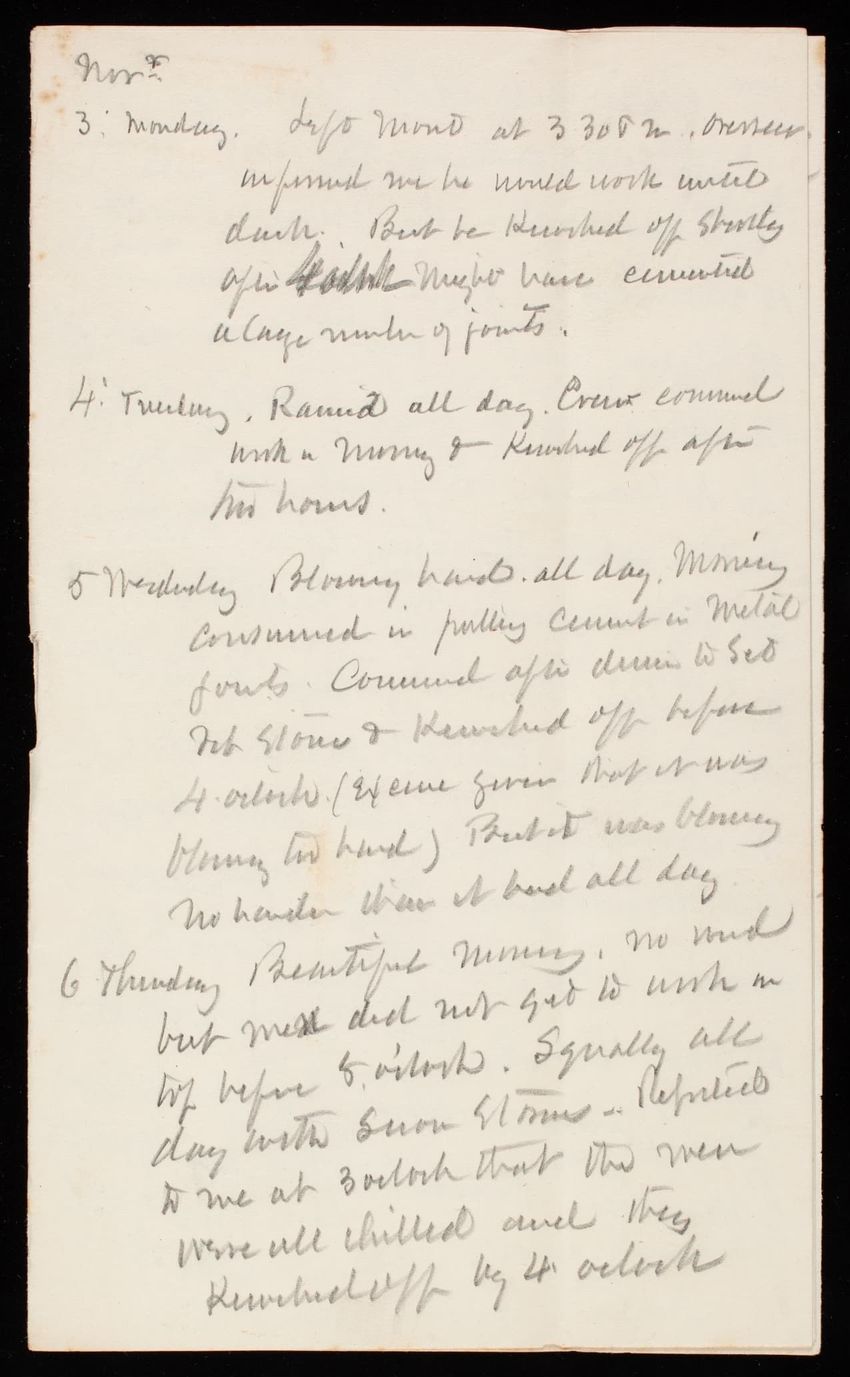 Novr
3. Monday. Left Mont at 3 30 P m. Overseer
informed me he would work until
dark. But he Knocked off Shortly
after Might have cemented
a large number of joints.
4. Tuesday. Rained all day. Crew commed
work in Morning & Knocked off after
two hours.
5 Wednesday Blowing hard. all day. Morning
consumed in putting cement in Metal
joints. Commed after dinner to Set
Stones & Knocked off before
4 oclock. (Excuse given that it was
blowing too hard) But it was blowing
No harder than it had all day
6 Thursday Beautiful Morning. no wind
but men did not get to work on
top before 8 o'clock. Squally all
day with Snow Storms. Reported
to me at 3 oclock that the men
were all chilled and they
Knocked Off by 4 oclock